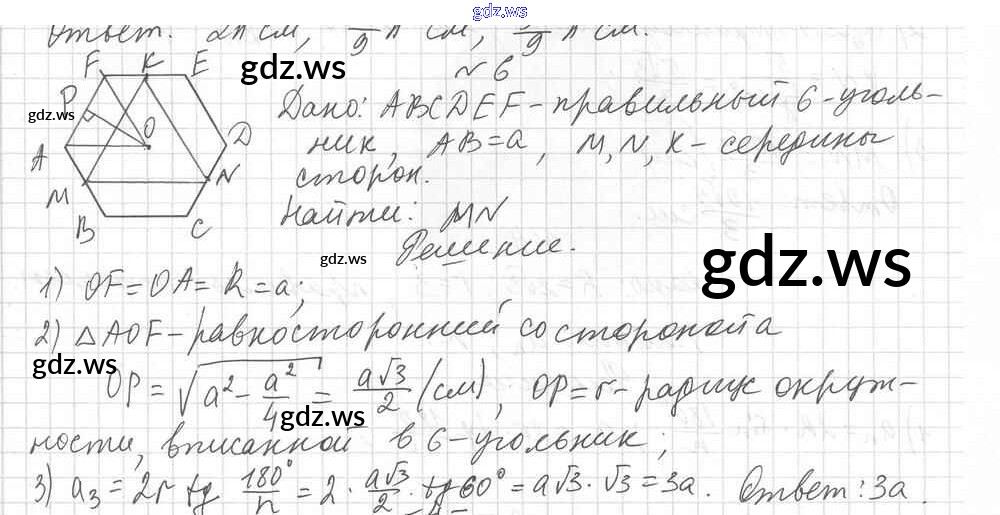 gdz.ws
Ответ: 2π см, /9 π см, /9 π см.
F K E
gdz.ws
№ 6
P
gdz.ws
O
Дано: ABCDEF – правильный 6-уголь-
A
D
ник, AB = a, M, N, K – середины
M
N
сторон.
B
C
Найти: MN
Решение.
gdz.ws
gdz.ws
1) OF = OA = R = a;
2) △AOF – равносторонний со стороной a
gdz.ws
OP = √(a² – a²/4) = a√3/2 (см), OP = r – радиус окруж-
gdz.ws
ности, вписанной в 6-угольник;
3) a₃ = 2r tg 180°/n = 2 · a√3/2 · tg 60° = a√3 · √3 = 3a. Ответ: 3a.